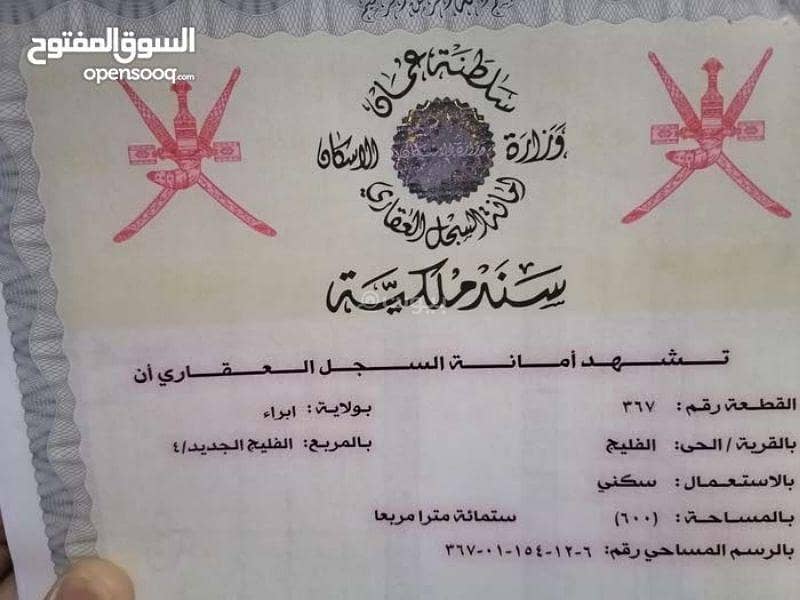 السوق المفتوح
opensooq.com
سلطنة عمان
وزارة الاسكان
امانة السجل العقاري
سند ملكية
تشهد أمانة السجل العقاري أن
القطعة رقم: ٣٦٧ بولاية: ابراء
بالقرية / الحى: الفليج بالمربع: الفليج الجديد/٤
بالاستعمال: سكني
بالمساحة: (٦٠٠) ستمائة مترا مربعا
بالرسم المساحي رقم: ٦-١٢-١٥٤-٠١-٣٦٧